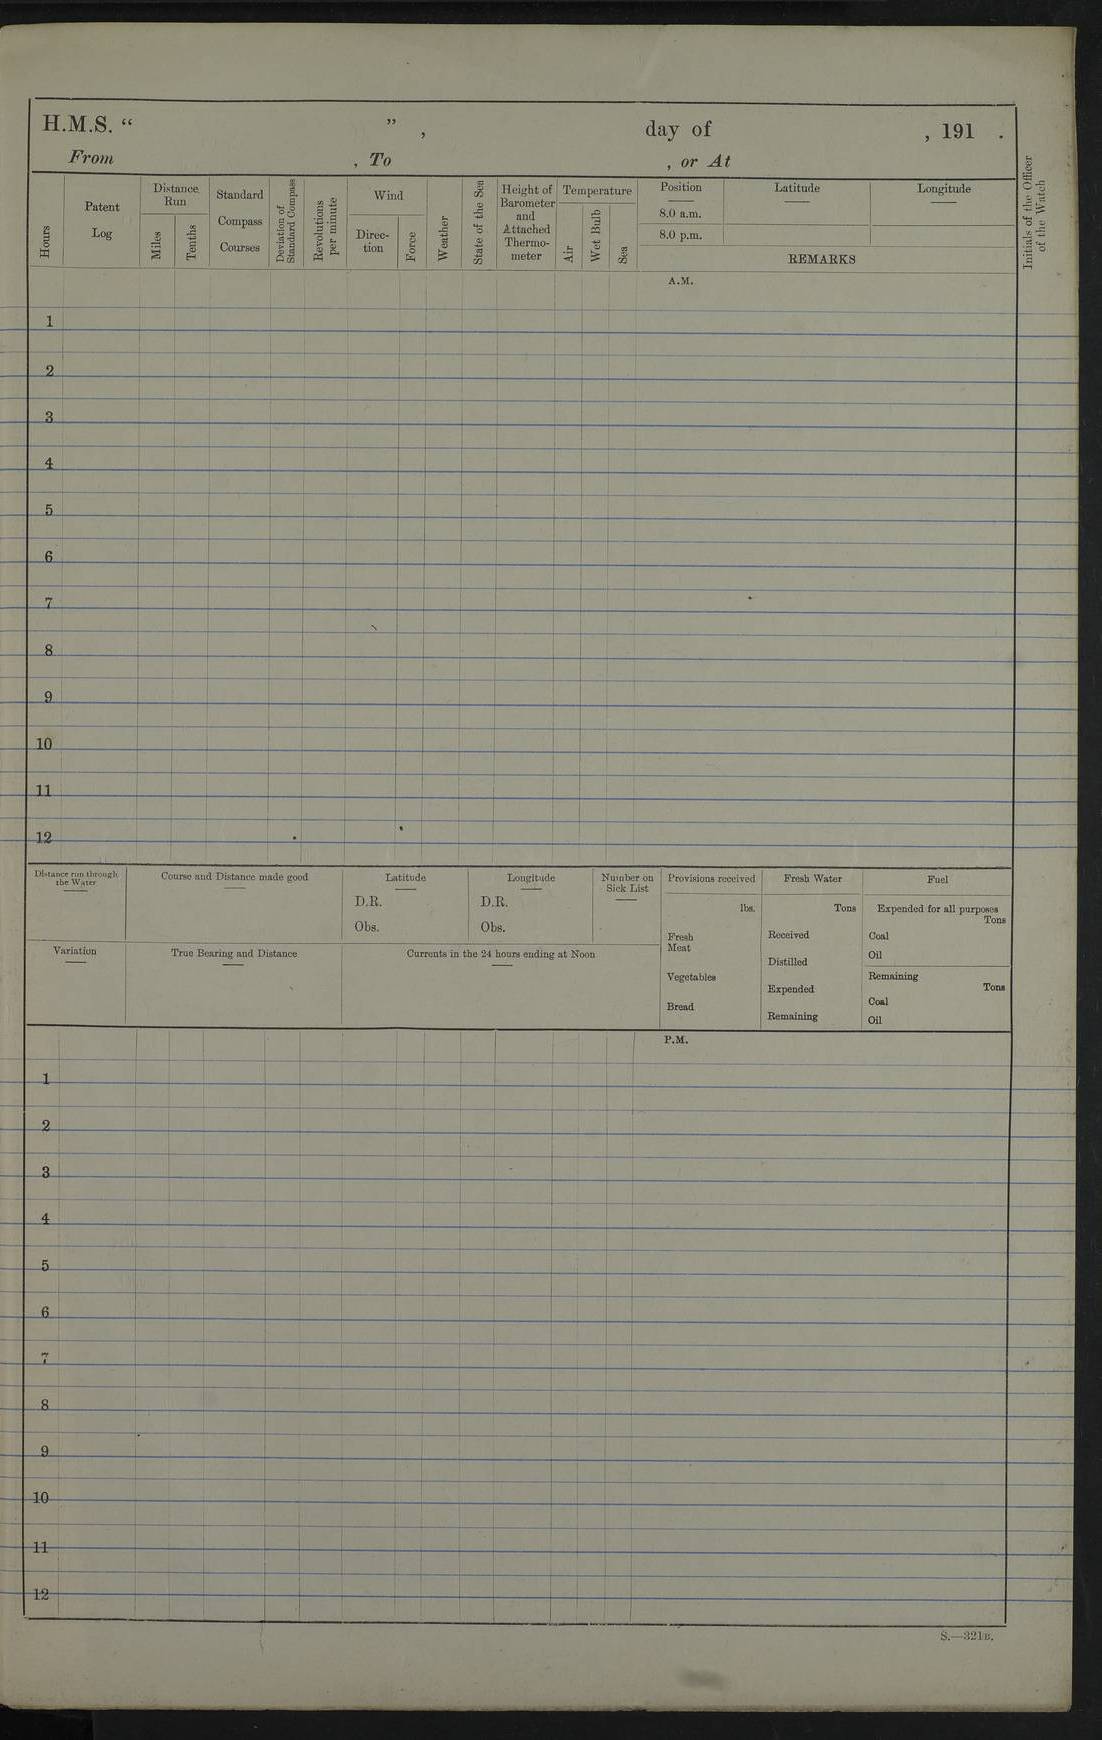 H.M.S. “ ” , day of , 191 .
From , To , or At
Hours
Patent
Log
Distance
Run
Miles
Tenths
Standard
Compass
Courses
Deviation of
Standard Compass
Revolutions
per minute
Wind
Direc-
tion
Force
Weather
State of the Sea
Height of
Barometer
and
Attached
Thermo-
meter
Temperature
Air
Wet Bulb
Sea
Position
8.0 a.m.
8.0 p.m.
Latitude
Longitude
REMARKS
Initials of the Officer
of the Watch
A.M.
1
2
3
4
5
6
7
8
9
10
11
12
Distance run through
the Water
Course and Distance made good
Latitude
D.R.
Obs.
Longitude
D.R.
Obs.
Number on
Sick List
Variation
True Bearing and Distance
Currents in the 24 hours ending at Noon
Provisions received
lbs.
Fresh
Meat
Vegetables
Bread
Fresh Water
Tons
Received
Distilled
Expended
Remaining
Fuel
Expended for all purposes
Tons
Coal
Oil
Remaining
Tons
Coal
Oil
P.M.
1
2
3
4
5
6
7
8
9
10
11
12
S.—321B.